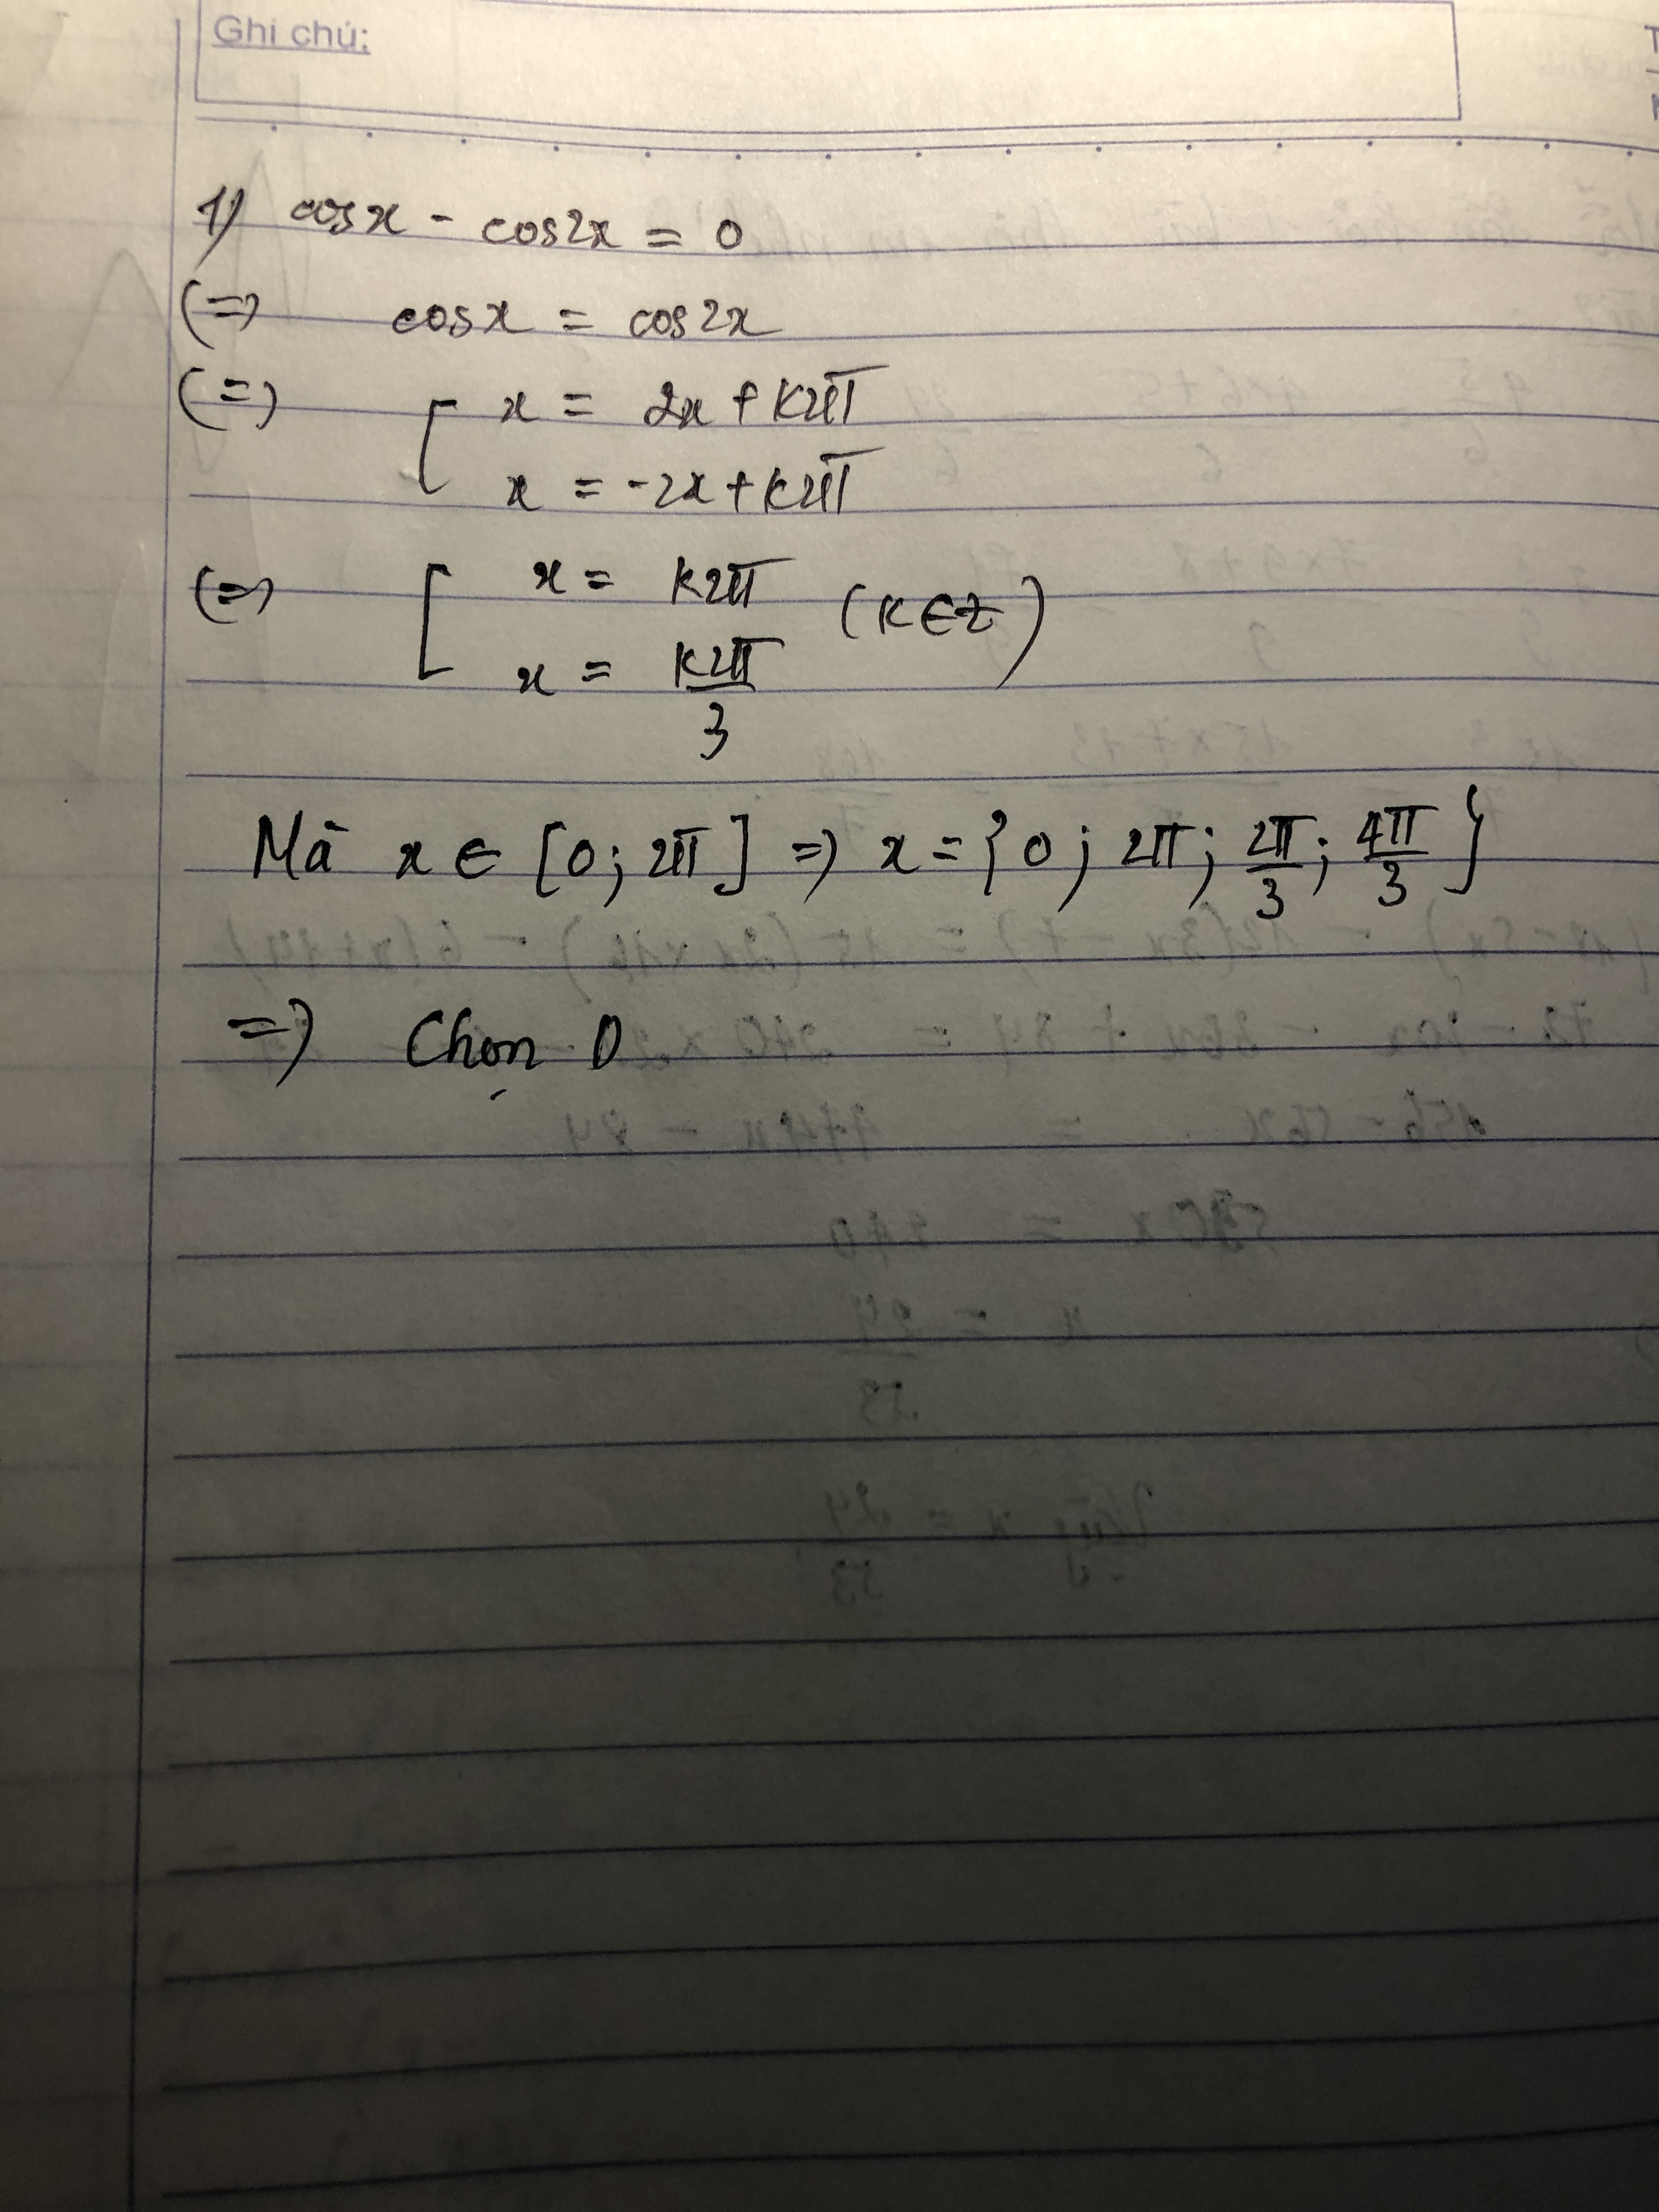 Ghi chú:
1) cosx - cos2x = 0
(=) cosx = cos2x
(=) [ x = 2x + k2π
x = -2x + k2π
(=) [ x = k2π
x = k2π/3 (k∈Z)
Mà x ∈ [0; 2π] => x = {0; 2π; 2π/3; 4π/3}
=> Chọn D